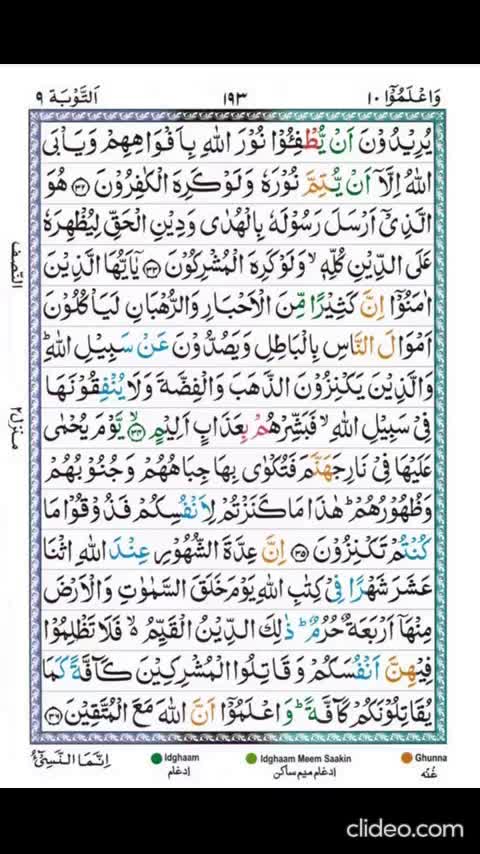 وَاعْلَمُوْٓا ١٠ ١٩٣ اَلتَّوْبَة ٩
يُرِيْدُوْنَ اَنْ يُّطْفِـُٔوْا نُوْرَ اللّٰهِ بِاَفْوَاهِهِمْ وَيَاْبَى
اللّٰهُ اِلَّاۤ اَنْ يُّتِمَّ نُوْرَهٗ وَلَوْ كَرِهَ الْكٰفِرُوْنَ ﴿٣٢﴾ هُوَ
الَّذِيْۤ اَرْسَلَ رَسُوْلَهٗ بِالْهُدٰى وَدِيْنِ الْحَقِّ لِيُظْهِرَهٗ
عَلَى الدِّيْنِ كُلِّهٖ ۙ وَلَوْ كَرِهَ الْمُشْرِكُوْنَ ﴿٣٣﴾ يٰۤاَيُّهَا الَّذِيْنَ
اٰمَنُوْۤا اِنَّ كَثِيْرًا مِّنَ الْاَحْبَارِ وَالرُّهْبَانِ لَيَاْكُلُوْنَ
اَمْوَالَ النَّاسِ بِالْبَاطِلِ وَيَصُدُّوْنَ عَنْ سَبِيْلِ اللّٰهِ ؕ
وَالَّذِيْنَ يَكْنِزُوْنَ الذَّهَبَ وَالْفِضَّةَ وَلَا يُنْفِقُوْنَهَا
فِيْ سَبِيْلِ اللّٰهِ ۙ فَبَشِّرْهُمْ بِعَذَابٍ اَلِيْمٍ ﴿٣٤﴾ ۙ يَّوْمَ يُحْمٰى
عَلَيْهَا فِيْ نَارِ جَهَنَّمَ فَتُكْوٰى بِهَا جِبَاهُهُمْ وَجُنُوْبُهُمْ
وَظُهُوْرُهُمْ ؕ هٰذَا مَا كَنَزْتُمْ لِاَنْفُسِكُمْ فَذُوْقُوْا مَا
كُنْتُمْ تَكْنِزُوْنَ ﴿٣٥﴾ اِنَّ عِدَّةَ الشُّهُوْرِ عِنْدَ اللّٰهِ اثْنَا
عَشَرَ شَهْرًا فِيْ كِتٰبِ اللّٰهِ يَوْمَ خَلَقَ السَّمٰوٰتِ وَالْاَرْضَ
مِنْهَاۤ اَرْبَعَةٌ حُرُمٌ ؕ ذٰلِكَ الدِّيْنُ الْقَيِّمُ ۙ فَلَا تَظْلِمُوْا
فِيْهِنَّ اَنْفُسَكُمْ وَقَاتِلُوا الْمُشْرِكِيْنَ كَآفَّةً كَمَا
يُقَاتِلُوْنَكُمْ كَآفَّةً ؕ وَاعْلَمُوْۤا اَنَّ اللّٰهَ مَعَ الْمُتَّقِيْنَ ﴿٣٦﴾
النّصف
منزل٢
اِنَّمَا النَّسِيْٓءُ
Idghaam
ادغام
Idghaam Meem Saakin
ادغام میم ساکن
Ghunna
غُنّه
clideo.com